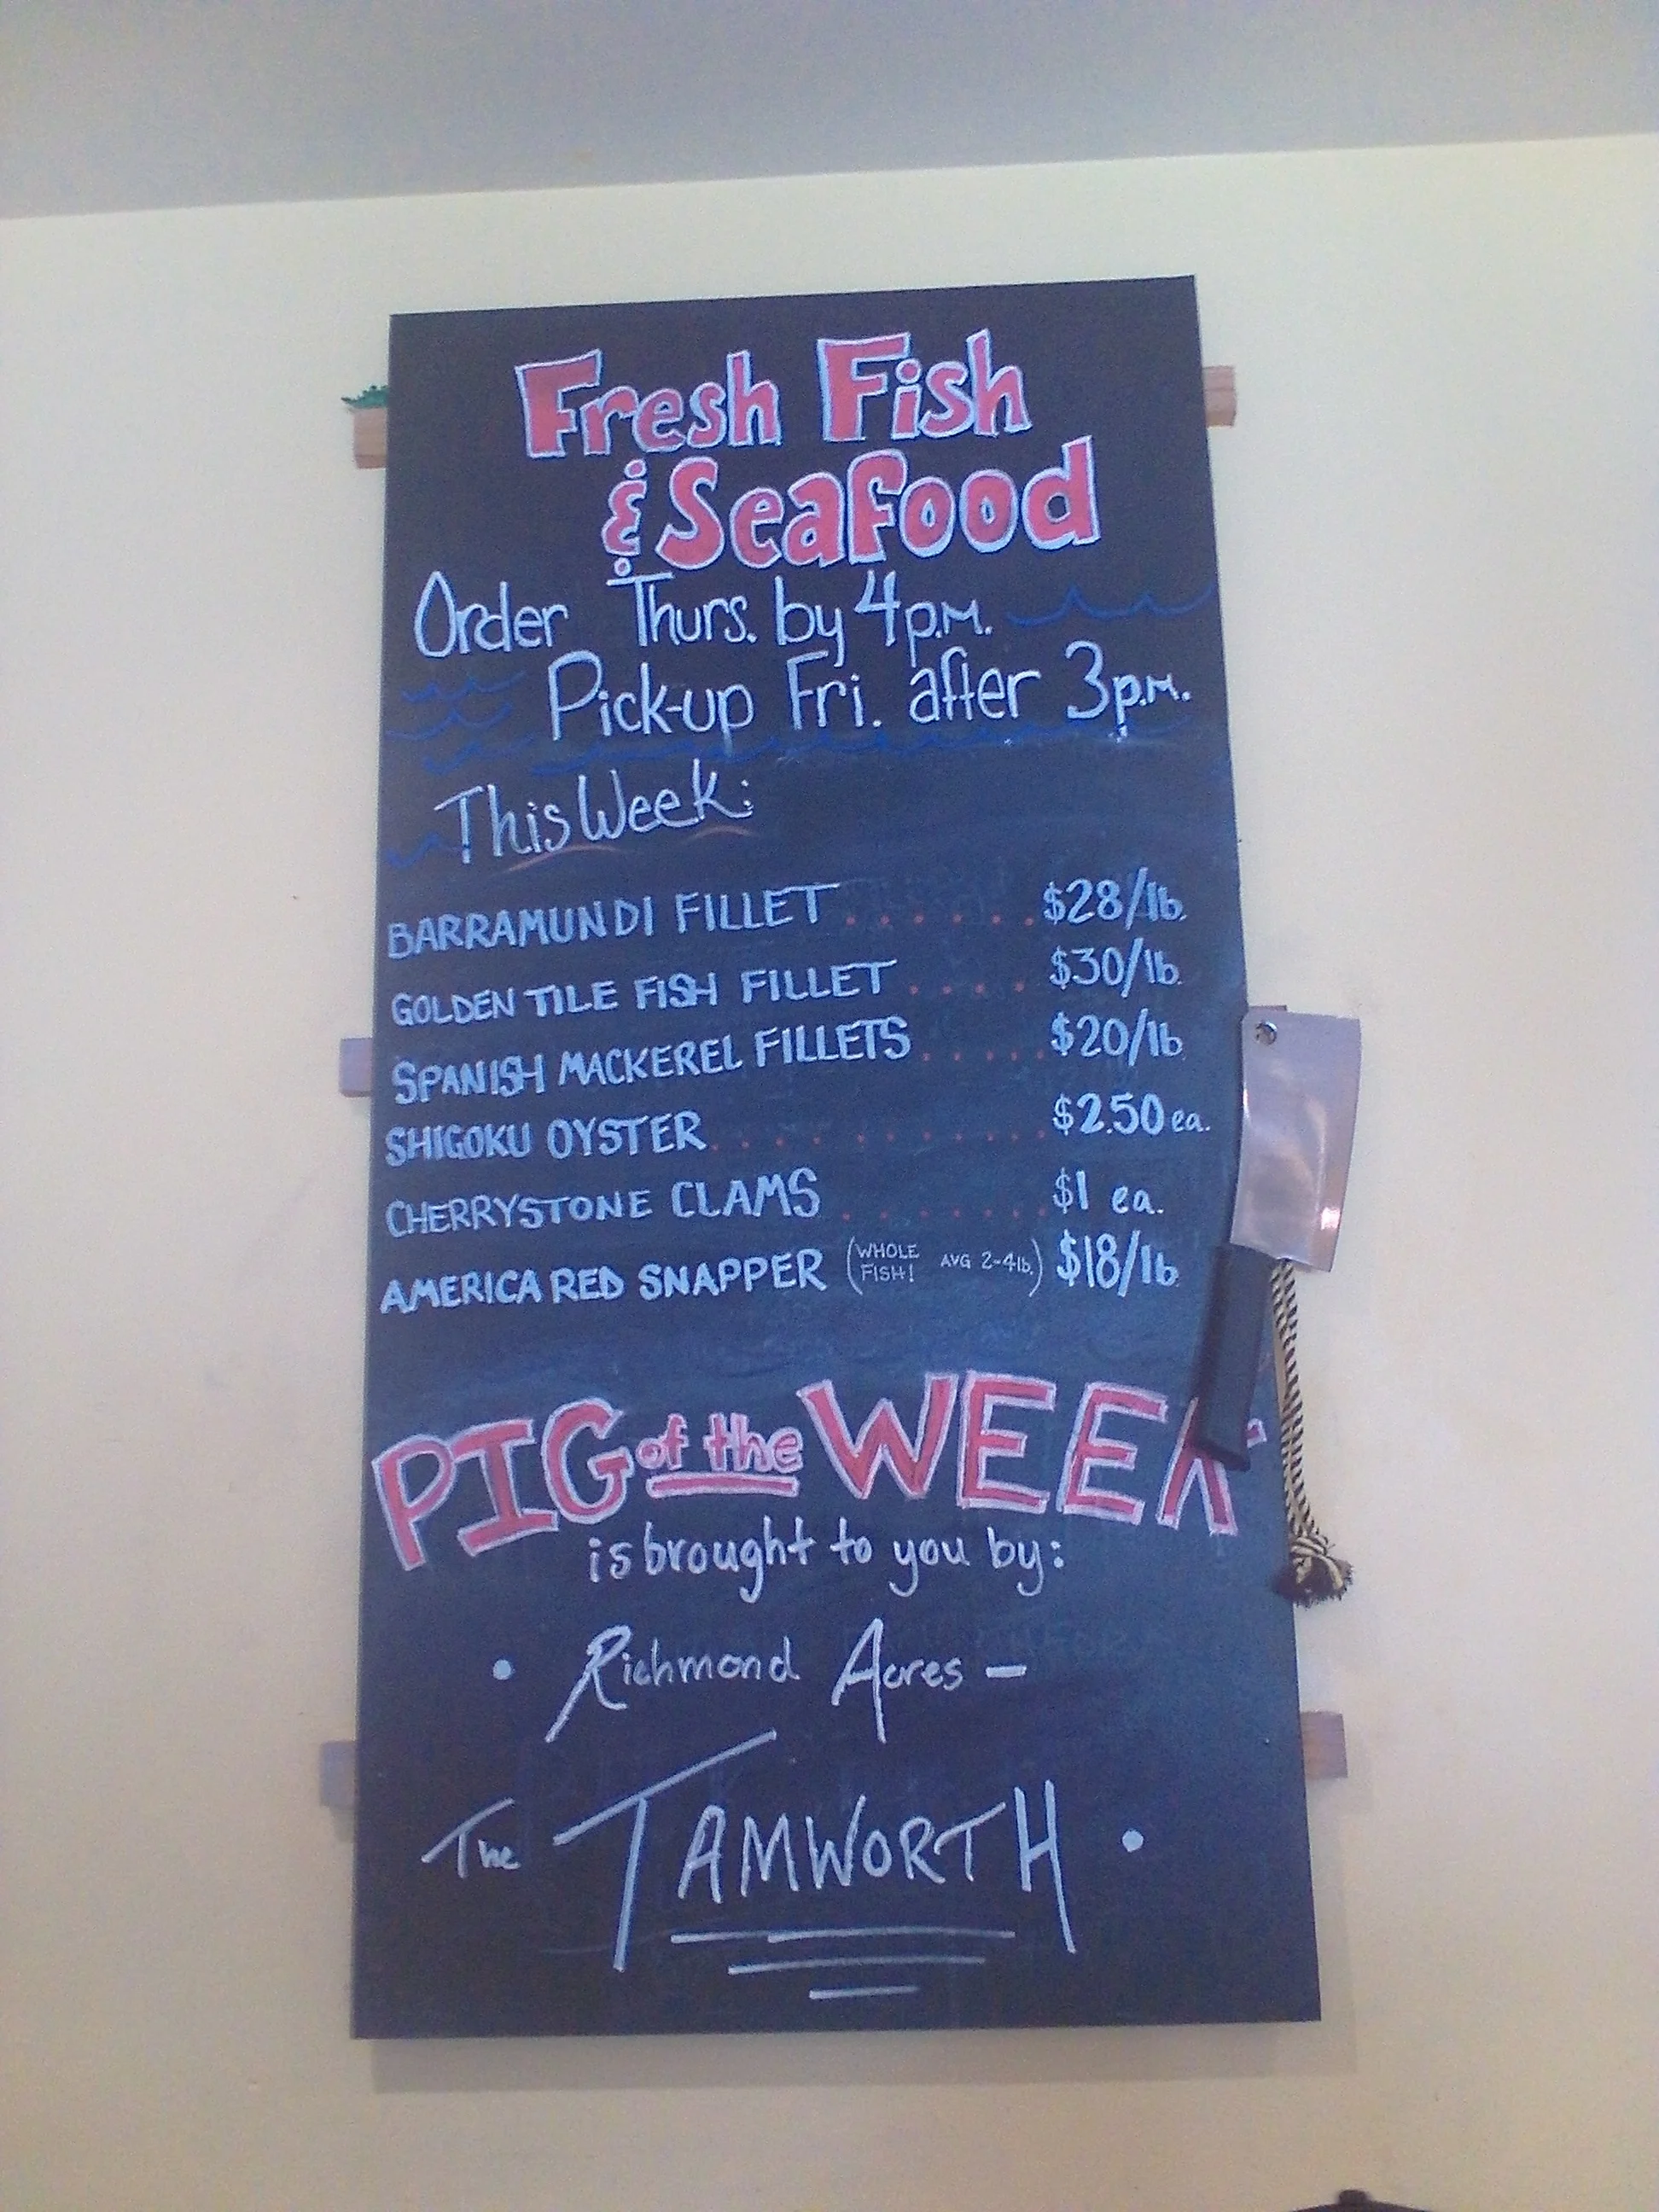 Fresh Fish
& Seafood
Order Thurs. by 4p.m.
Pick-up Fri. after 3p.m.
This Week:
BARRAMUNDI FILLET ...... $28/lb.
GOLDEN TILE FISH FILLET .... $30/lb.
SPANISH MACKEREL FILLETS ..... $20/lb
SHIGOKU OYSTER .......... $2.50 ea.
CHERRYSTONE CLAMS ....... $1 ea.
AMERICA RED SNAPPER (WHOLE FISH! AVG 2-4lb.) $18/lb.
PIG of the WEEK
is brought to you by:
• Richmond Acres –
The TAMWORTH •